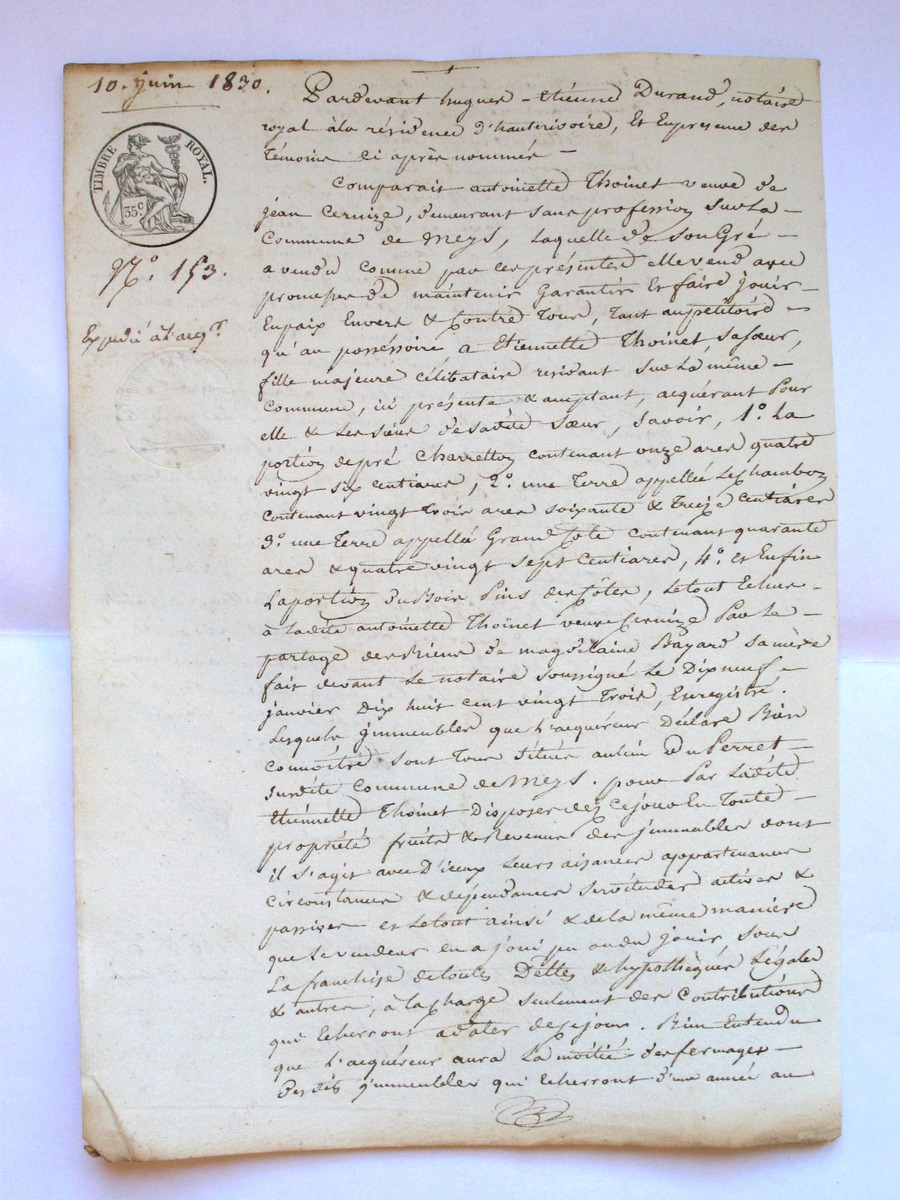 10. juin 1830.
TIMBRE ROYAL.
35 C
N.o 153.
Expédié à l'acqr
Pardevant hugues - Etiénne Durand, notaire
royal à la résidence d'hauterivoire, Et Enpresence des
Témoins ci après nommés -
Comparait antoinette Thoinet veuve de
jean Cernize, demeurant sans profession Sur La -
Commune de Meys, Laquelle de Son Gré -
a vendu comme par ces présentes elle vend avec
promesse de maintenir Garantir Et faire jouir -
En paix Envers & Contre Tous, Tant au pétitoire -
qu'au posséssoire, a Etiennette Thoinet, sa sœur,
fille majeure célibataire residant Sur La même -
Commune, ici présente & acceptant, acquérant Pour
elle & Les Siens de sadite Sœur, Savoir, 1.o La
portion de pré Charretton contenant onze ares quatre
vingt six centiares, 2.o une Terre appellée Le Chambon
contenant vingt Trois ares soixante & Treize Centiares
3.o une Terre appellée Grand Cote contenant quarante
ares & quatre vingt sept Centiares, 4.o et Enfin
La portion du Bois Pins des Côtes, Le tout Echus -
à Ladite antoinette Thoinet veuve Cernize Par Le -
partage des Biens de magdelaine Bayard sa mère
fait devant Le notaire soussigné Le Dix neuf -
janvier Dix huit cent vingt Trois, Enregistré.
Lesquels jmmeubles que L'acquéreur Déclare Bien
connoître sont Tous situés au lieu du Perret -
susdite Commune de Meys. pour Par Ladite
Etiénnette Thoinet Disposer dez ce jour En Toute -
propriété fruits & Revenus des jmmeubles dont
il s'agit avec D'iceux Leurs aisances appartenances
circonstances & dépendances Servitudes actives &
passives et Le tout ainsi & de la même manière
que Le vendeur en a joui pu ou du jouir, sous
La franchise de toutes Dettes & hypothèques Légales
& autres, à la charge seulement des Contributions
qui Echerront a dater de ce jour. Bien Entendu
que L'acquéreur aura La moitié des fermages -
Desdits jmmeubles qui Echerront d'une année au